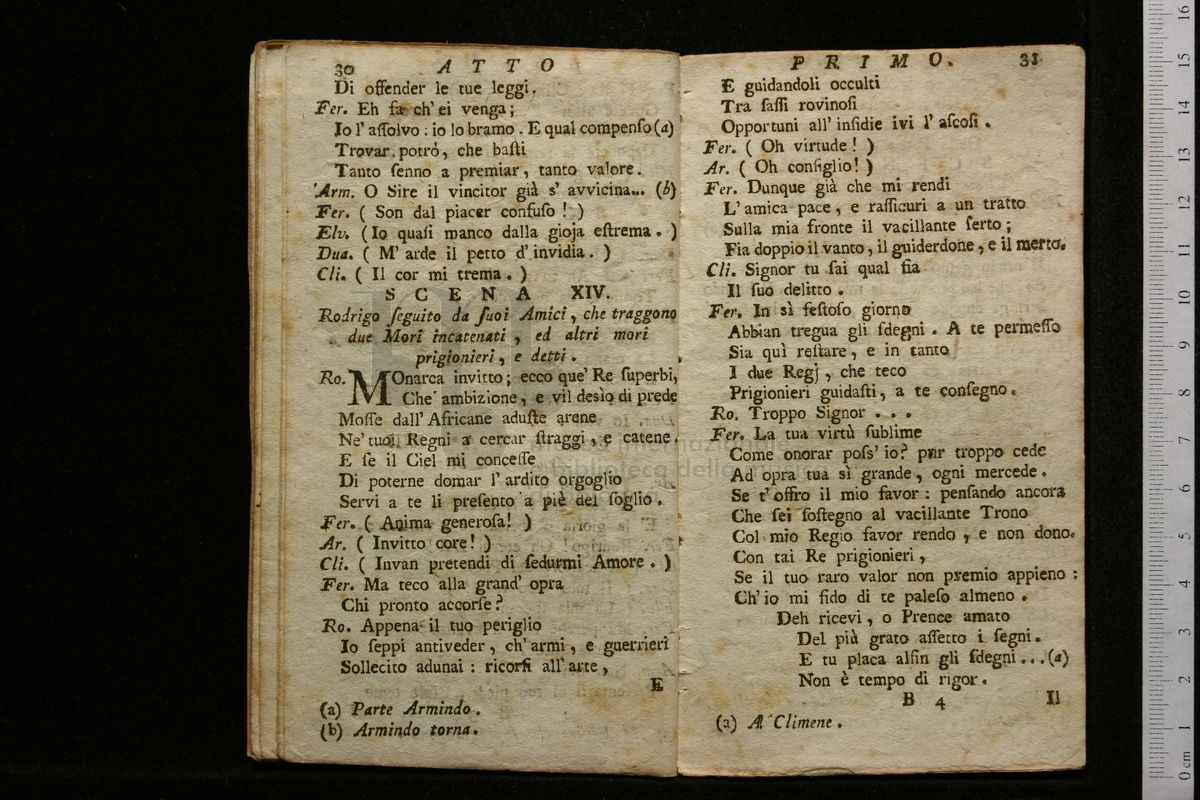 30 ATTO
Di offender le tue leggi.
Fer. Eh fa ch' ei venga;
Io l' aſſolvo: io lo bramo. E qual compenſo (a)
Trovar potrò, che baſti
Tanto ſenno a premiar, tanto valore.
Arm. O Sire il vincitor già s' avvicina... (b)
Fer. ( Son dal piacer confuſo ! )
Elv. ( Io quaſi manco dalla gioja eſtrema. )
Dua. ( M' arde il petto d' invidia. )
Cli. ( Il cor mi trema. )
SCENA XIV.
Rodrigo ſeguito da ſuoi Amici, che traggono
due Mori incatenati, ed altri mori
prigionieri, e detti.
Ro. MOnarca invitto; ecco que' Re ſuperbi,
Che ambizione, e vil desìo di prede
Moſſe dall' Africane aduſte arene
Ne' tuoi Regni a cercar ſtraggi, e catene.
E ſe il Ciel mi conceſſe
Di poterne domar l' ardito orgoglio
Servi a te li preſento a piè del ſoglio.
Fer. ( Anima generoſa! )
Ar. ( Invitto core! )
Cli. ( Invan pretendi di ſedurmi Amore. )
Fer. Ma teco alla grand' opra
Chi pronto accorſe?
Ro. Appena il tuo periglio
Io ſeppi antiveder, ch' armi, e guerrieri
Sollecito adunai: ricorſi all' arte,
E
(a) Parte Armindo.
(b) Armindo torna.
PRIMO. 31
E guidandoli occulti
Tra ſaſſi rovinoſi
Opportuni all' inſidie ivi l' aſcoſi.
Fer. ( Oh virtude! )
Ar. ( Oh conſiglio! )
Fer. Dunque già che mi rendi
L' amica pace, e raſſicuri a un tratto
Sulla mia fronte il vacillante ſerto;
Fia doppio il vanto, il guiderdone, e il merto.
Cli. Signor tu ſai qual fia
Il ſuo delitto.
Fer. In sì feſtoſo giorno
Abbian tregua gli ſdegni. A te permeſſo
Sia quì reſtare, e in tanto
I due Regj, che teco
Prigionieri guidaſti, a te conſegno.
Ro. Troppo Signor . . .
Fer. La tua virtù ſublime
Come onorar poſs' io? pur troppo cede
Ad opra tua sì grande, ogni mercede.
Se t' offro il mio favor: penſando ancora
Che ſei ſoſtegno al vacillante Trono
Col mio Regio favor rendo, e non dono.
Con tai Re prigionieri,
Se il tuo raro valor non premio appieno:
Ch' io mi fido di te paleſo almeno.
Deh ricevi, o Prence amato
Del più grato affetto i ſegni.
E tu placa alfin gli ſdegni... (a)
Non è tempo di rigor.
B 4 Il
(a) A Climene.
museo internazionale
e biblioteca della musica
0 cm 1 2 3 4 5 6 7 8 9 10 11 12 13 14 15 16